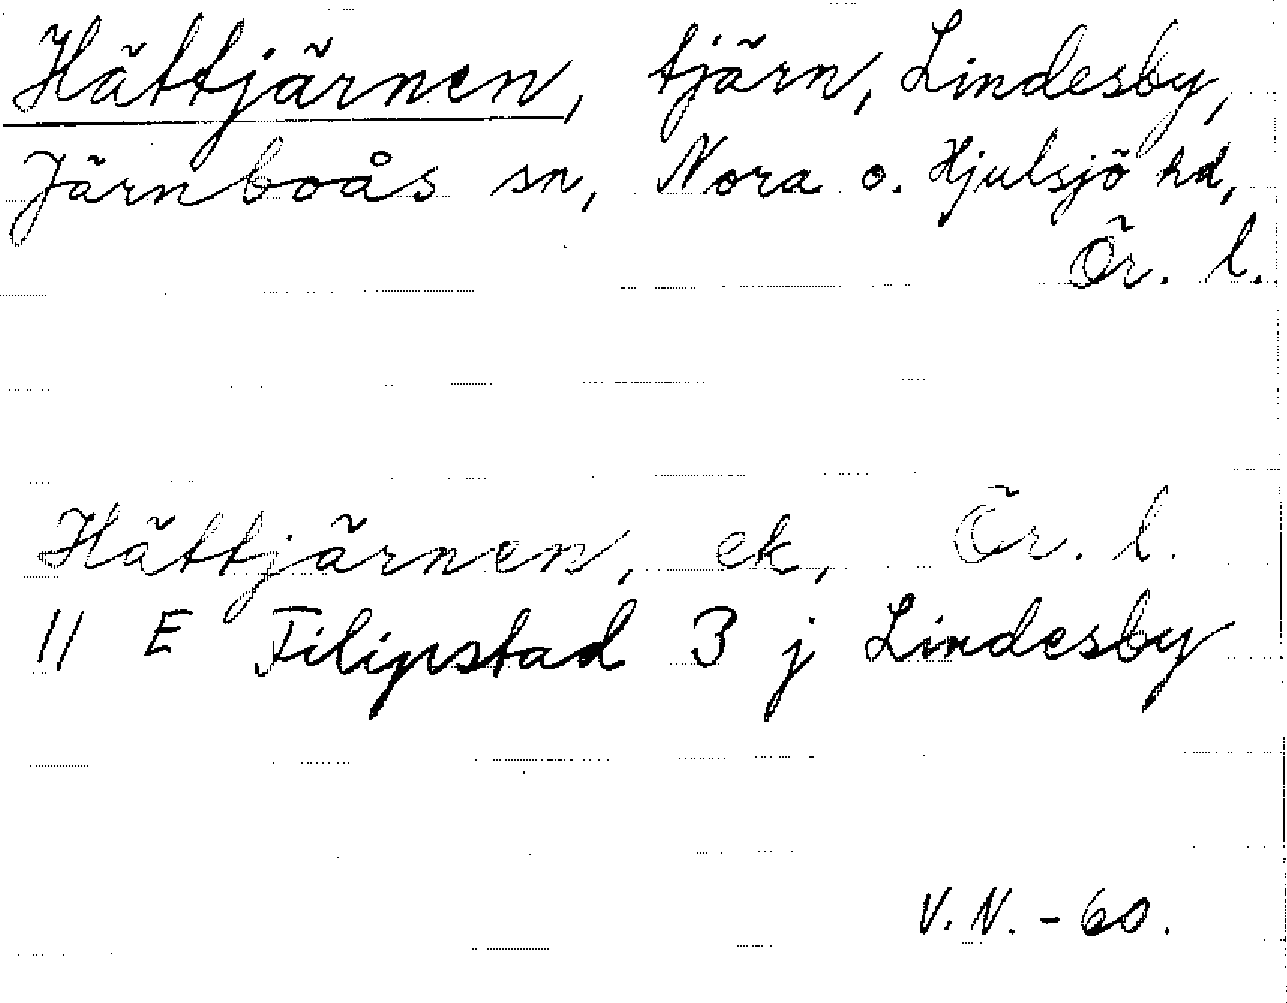 Hättjärnen, tjärn, Lindesby,
Järnboås sn, Nora o. Hjulsjö hd,
Ör. l.
Hättjärnen, ek, Ör. l.
11 E Filipstad 3 j Lindesby
V. N. - 60.